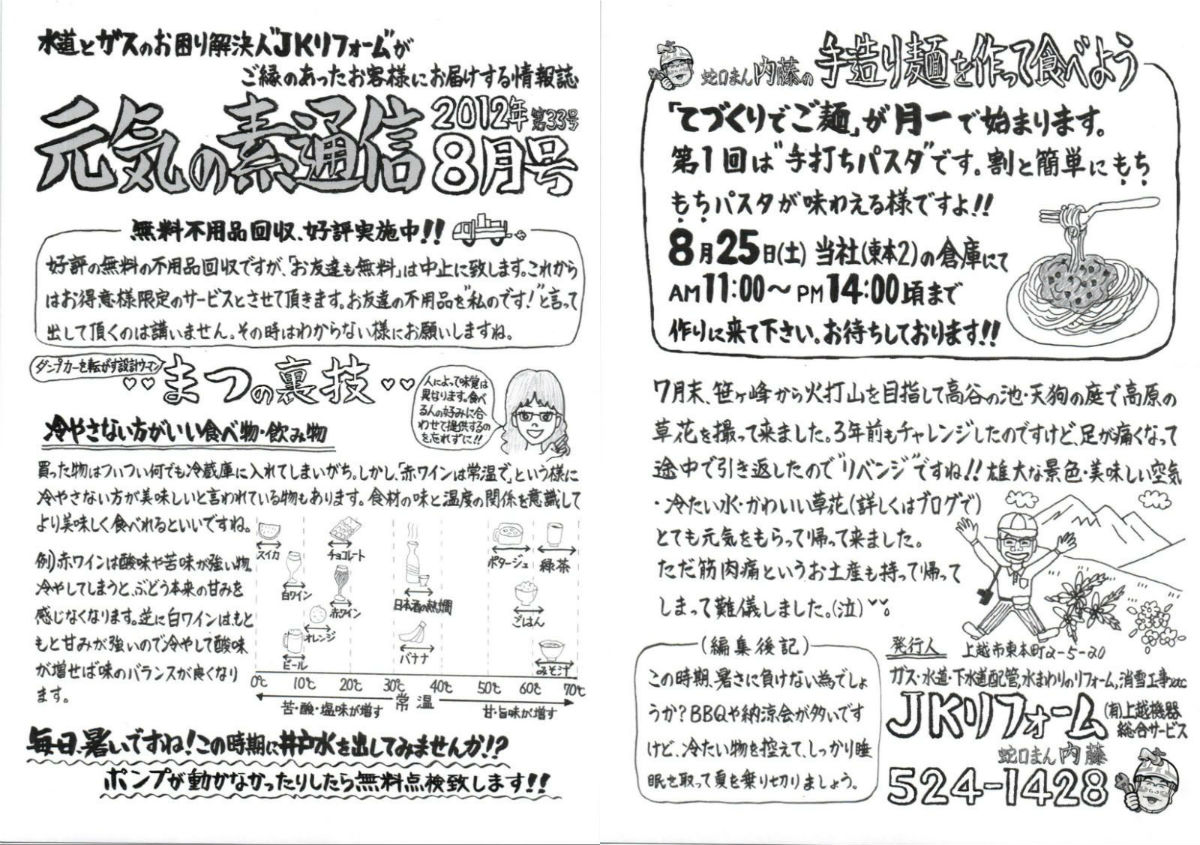 水道とガスのお困り解決人"JKリフォーム"が
ご縁のあったお客様にお届けする情報誌
元気の素通信
2012年 第33号
8月号
無料不用品回収、好評実施中!!
好評の無料の不用品回収ですが、「お友達も無料」は中止に致します。これから
はお得意様限定のサービスとさせて頂きます。お友達の不用品を"私のです!"と言って
出して頂くのは構いません。その時はわからない様にお願いしますね。
ダンプカーを転がす設計ウーマン
まつの裏技
人によって味覚は
異なります。食べ
る人の好みに合
わせて提供するの
を忘れずに!!
冷やさない方がいい食べ物・飲み物
買った物はついつい何でも冷蔵庫に入れてしまいがち。しかし、「赤ワインは常温で」という様に
冷やさない方が美味しいと言われている物もあります。食材の味と温度の関係を意識して
より美味しく食べれるといいですね。
例)赤ワインは酸味や苦味が強い物
冷やしてしまうと、ぶどう本来の甘みを
感じなくなります。逆に白ワインはもと
もと甘みが強いので冷やして酸味
が増せば味のバランスが良くなり
ます。
スイカ
チョコレート
ポタージュ
緑茶
白ワイン
赤ワイン
日本酒の熱燗
ごはん
オレンジ
ビール
バナナ
みそ汁
0℃ 10℃ 20℃ 30℃ 40℃ 50℃ 60℃ 70℃
苦・酸・塩味が増す 常温 甘・旨味が増す
毎日、暑いですね!この時期に井戸水を出してみませんか!?
ポンプが動かなかったりしたら無料点検致します!!
蛇口まん 内藤の 手造り麺を作って食べよう
「てづくりでご麺」が月一で始まります。
第1回は"手打ちパスタ"です。割と簡単にもち
もちパスタが味わえる様ですよ!!
8月25日(土) 当社(東本2)の倉庫にて
AM11:00～PM14:00頃まで
作りに来て下さい。お待ちしております!!
7月末、笹ヶ峰から火打山を目指して高谷の池・天狗の庭で高原の
草花を撮って来ました。3年前もチャレンジしたのですけど、足が痛くなって
途中で引き返したので"リベンジ"ですね!! 雄大な景色・美味しい空気
・冷たい水・かわいい草花(詳しくはブログで)
とても元気をもらって帰って来ました。
ただ筋肉痛というお土産も持って帰って
しまって難儀しました。(泣)
(編集後記)
この時期、暑さに負けない為でしょ
うか?BBQや納涼会が多いです
けど、冷たい物を控えて、しっかり睡
眠を取って夏を乗り切りましょう。
発行人 上越市東本町2-5-20
ガス・水道・下水道配管,水まわりのリフォーム,消雪工事etc
JKリフォーム
(有)上越機器
総合サービス
蛇口まん 内藤
524-1428